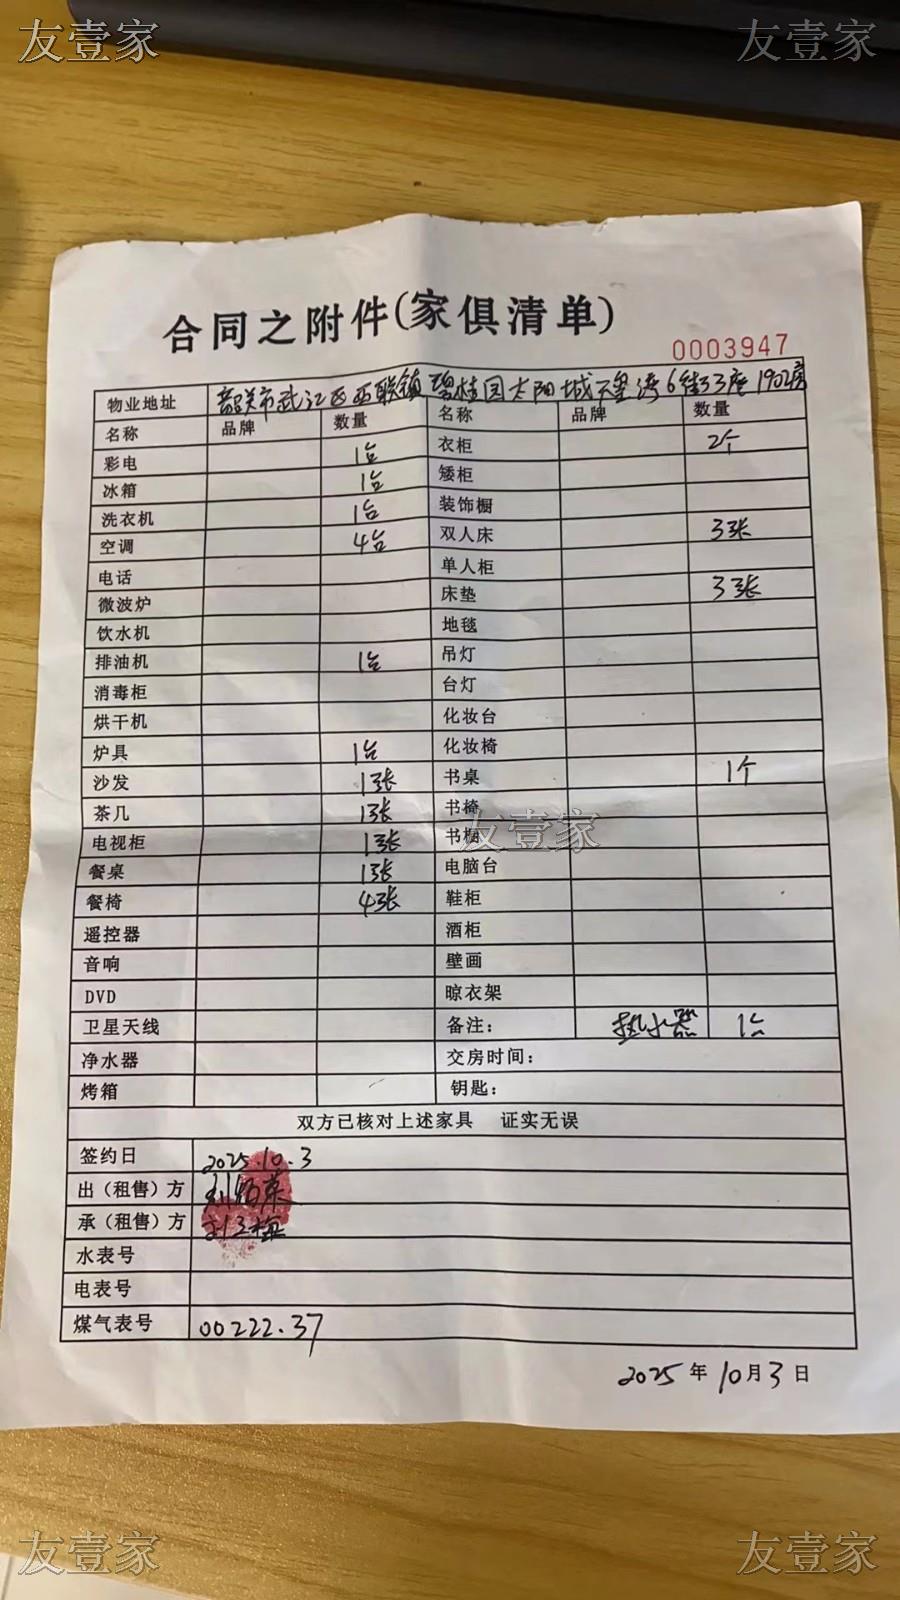 友壹家 友壹家
合同之附件(家俱清单)
0003947
物业地址 韶关市武江区西联镇碧桂园太阳城天玺湾6街33座1902房
名称 品牌 数量 名称 品牌 数量
彩电 1台 衣柜 2个
冰箱 1台 矮柜
洗衣机 1台 装饰橱
空调 4台 双人床 3张
电话 单人柜
微波炉 床垫 3张
饮水机 地毯
排油机 1台 吊灯
消毒柜 台灯
烘干机 化妆台
炉具 1台 化妆椅
沙发 1张 书桌 1个
茶几 1张 书椅
电视柜 1张 书橱
友壹家
餐桌 1张 电脑台
餐椅 4张 鞋柜
遥控器 酒柜
音响 壁画
DVD 晾衣架
卫星天线 备注: 热水器 1台
净水器 交房时间:
烤箱 钥匙:
双方已核对上述家具 证实无误
签约日 2025.10.3
出（租售）方
承（租售）方
水表号
电表号
煤气表号 00222.37
2025年10月3日
友壹家 友壹家